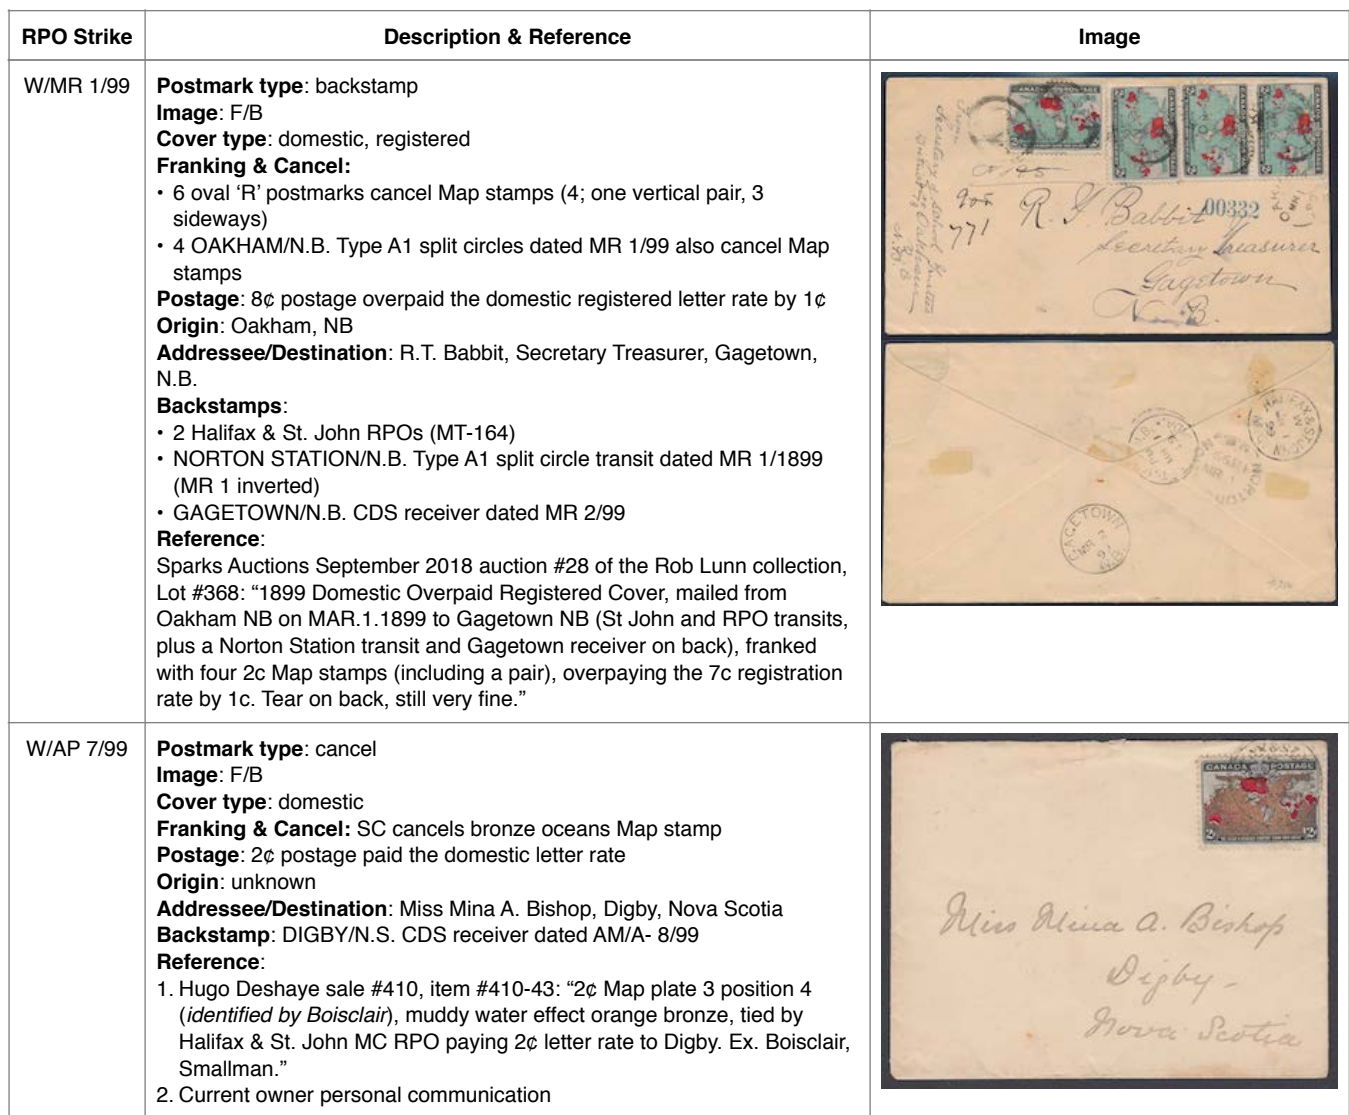 RPO Strike
Description & Reference
Image
W/MR 1/99
Postmark type: backstamp
Image: F/B
Cover type: domestic, registered
Franking & Cancel:
• 6 oval ‘R’ postmarks cancel Map stamps (4; one vertical pair, 3
sideways)
• 4 OAKHAM/N.B. Type A1 split circles dated MR 1/99 also cancel Map
stamps
Postage: 8¢ postage overpaid the domestic registered letter rate by 1¢
Origin: Oakham, NB
Addressee/Destination: R.T. Babbit, Secretary Treasurer, Gagetown,
N.B.
Backstamps:
• 2 Halifax & St. John RPOs (MT-164)
• NORTON STATION/N.B. Type A1 split circle transit dated MR 1/1899
(MR 1 inverted)
• GAGETOWN/N.B. CDS receiver dated MR 2/99
Reference:
Sparks Auctions September 2018 auction #28 of the Rob Lunn collection,
Lot #368: “1899 Domestic Overpaid Registered Cover, mailed from
Oakham NB on MAR.1.1899 to Gagetown NB (St John and RPO transits,
plus a Norton Station transit and Gagetown receiver on back), franked
with four 2c Map stamps (including a pair), overpaying the 7c registration
rate by 1c. Tear on back, still very fine.”
CANADA POSTAGE
771
R. T. Babbit
00332
Secretary Treasurer
Gagetown
N.B.
HALIFAX & ST. JOHN
NORTON
GAGETOWN
MR 2
N.B.
W/AP 7/99
Postmark type: cancel
Image: F/B
Cover type: domestic
Franking & Cancel: SC cancels bronze oceans Map stamp
Postage: 2¢ postage paid the domestic letter rate
Origin: unknown
Addressee/Destination: Miss Mina A. Bishop, Digby, Nova Scotia
Backstamp: DIGBY/N.S. CDS receiver dated AM/A- 8/99
Reference:
1. Hugo Deshaye sale #410, item #410-43: “2¢ Map plate 3 position 4
(identified by Boisclair), muddy water effect orange bronze, tied by
Halifax & St. John MC RPO paying 2¢ letter rate to Digby. Ex. Boisclair,
Smallman.”
2. Current owner personal communication
CANADA POSTAGE
2 2
Miss Mina A. Bishop
Digby -
Nova Scotia